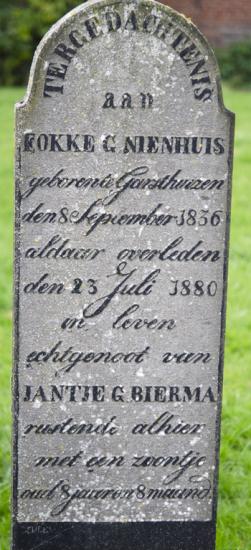 TER GEDACHTENIS
aan
FOKKE G. NIENHUIS
geboren te Garsthuizen
den 8 September 1836
aldaar overleden
den 23 Juli 1880
in leven
echtgenoot van
JANTJE G. BIERMA
rustende alhier
met een zoontje
oud 8 jaar en 8 maand.